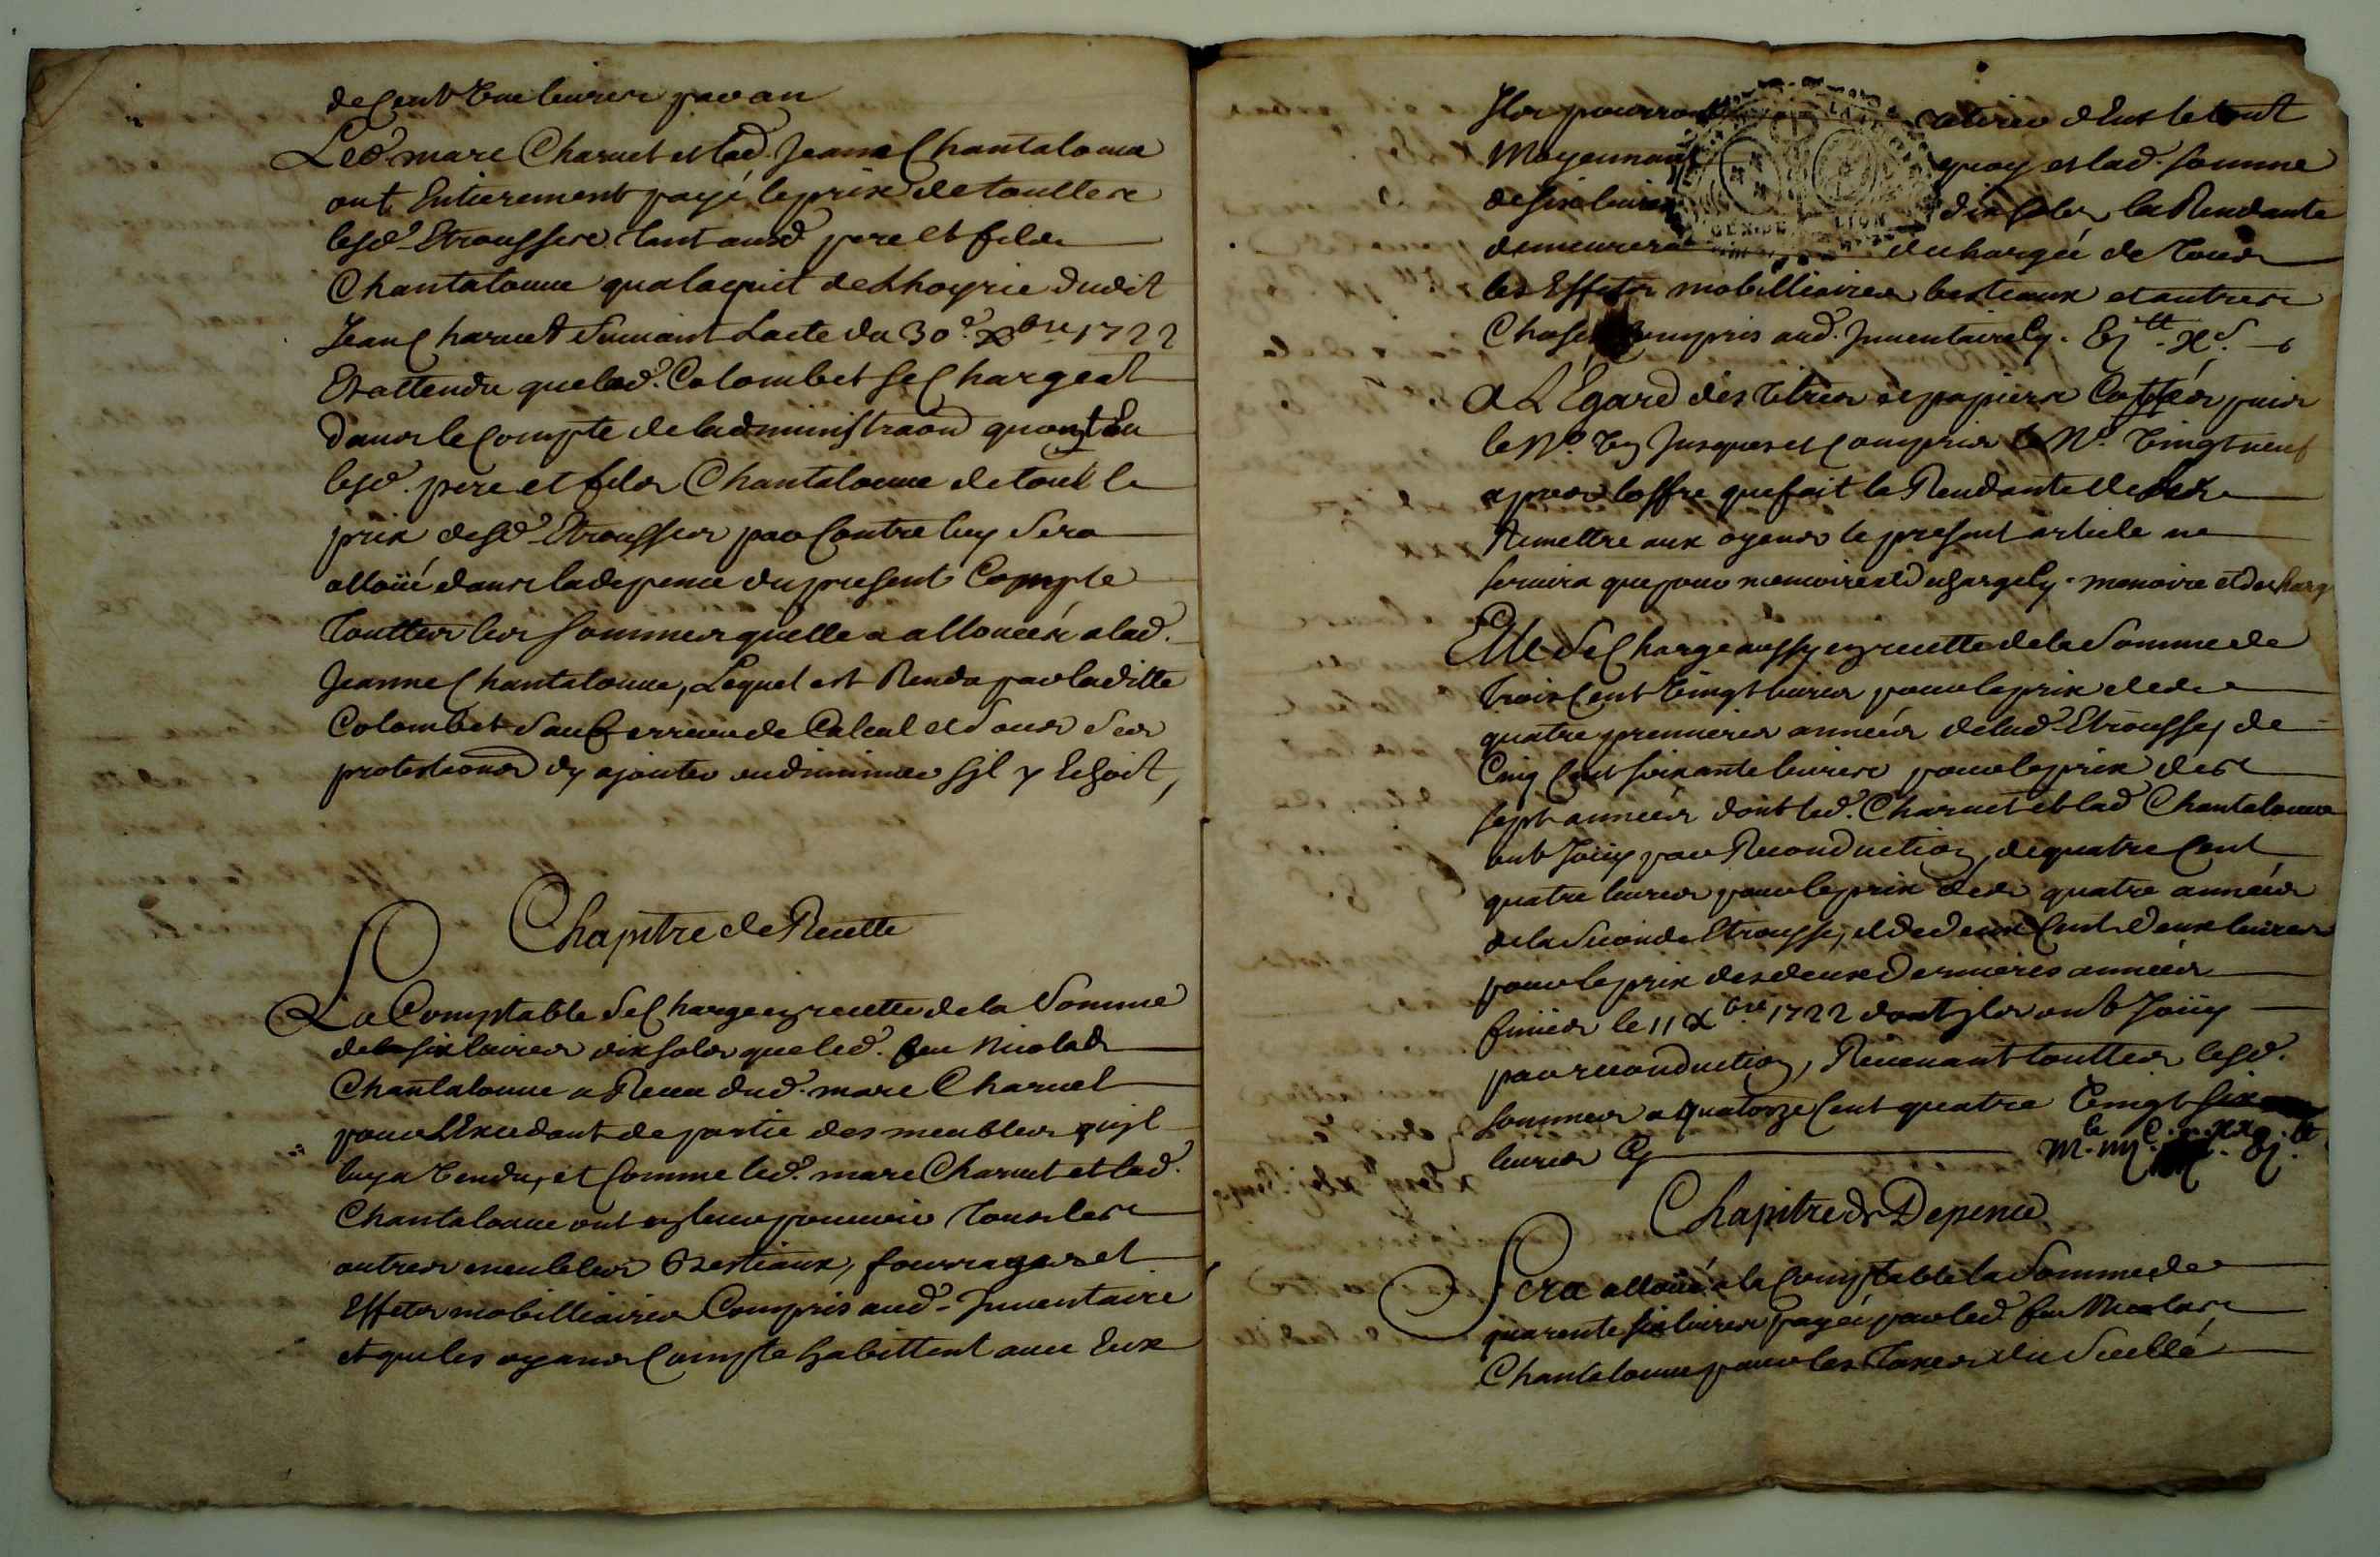 de Cent une livres par an
Led. marc Charuet et lad. Jeanne Chantaloüue
ont Entierement payé le prix de touttes
lesd. Etrousses tant ausd. pere et fils
Chantaloüue qua laquit de Lhoyrie dudit
Jean Charuet Suivant Lacte du 30e. Xbre 1722
Et attendu que lad. Colombet se Chargeat
dans le Compte de ladministraon quont Eu
lesd. pere et fils Chantaloüue de tout le
prix desd. Etrousses par Contre luy Sera
alloüé dans la depence du present Compte
touttes les sommes quelle a allouées a lad.
Jeanne Chantaloüue, Lequel est Rendu par laditte
Colombet Sauf erreur de Calcul et sous ses
protestions dy ajouter ou diminuer Sjl y Echoit,
Chapitre de Recette
La Comptable Se Charge en recette de la Somme
de six livres dix sols que led. feu Nicolas
Chantaloüue a Receu dud. marc Charuet
pour LExcedant de partie des meubles qujl
luy a Vendu, et Comme led. marc Charuet et lad.
Chantaloüue ont en leur pouvoir tous les
autres meubles Bestiaux, fourrages et
Effets mobilliaires Compris aud. Inventaire
et que les oyans Compte habittent avec Eux
Ils pourront retirer d'Eux le tout
Moyennant quoy et lad. somme
de six livres dix sols, la Rendante
demeurera dechargée de tous
les Effets mobilliaires bestiaux et autres
Choses Compris aud. Inventaire Cy. vj tt. x s.
A LÉgard des titres et papiers Cottés puis
le No. Jusques et Compris le No. Vingt neuf
apres loffre que fait la Rendante de les
Remettre aux oyans le present article ne
servira que pour memoire et decharge Cy. memoire et decharg
Elle Se Charge aussy en recette de la Somme de
trois Cent Vingt livres pour le prix des
quatre premieres années de lad. Etrousse, de
Cinq Cent soixante livres pour le prix des
sept années dont led. Charuet et lad. Chantaloüue
ont Joüy par Reconduction, de quatre Cent
quatre livres pour le prix des quatre années
de la Seconde Etrousse, et de deux Cent deux livres
pour le prix des deux Dernieres années
finies le 11 Xbre 1722 dont jls ont Joüy
par reconduction, Revenant touttes lesd.
sommes a Quatorze Cent quatre Vingt six
livres Cy
Chapitre de Depence
Sera alloüé a la Comptable la Somme de
quarente six livres payée par led. feu Nicolas
Chantaloüue pour les taxes du Scellé
GEN DE LION